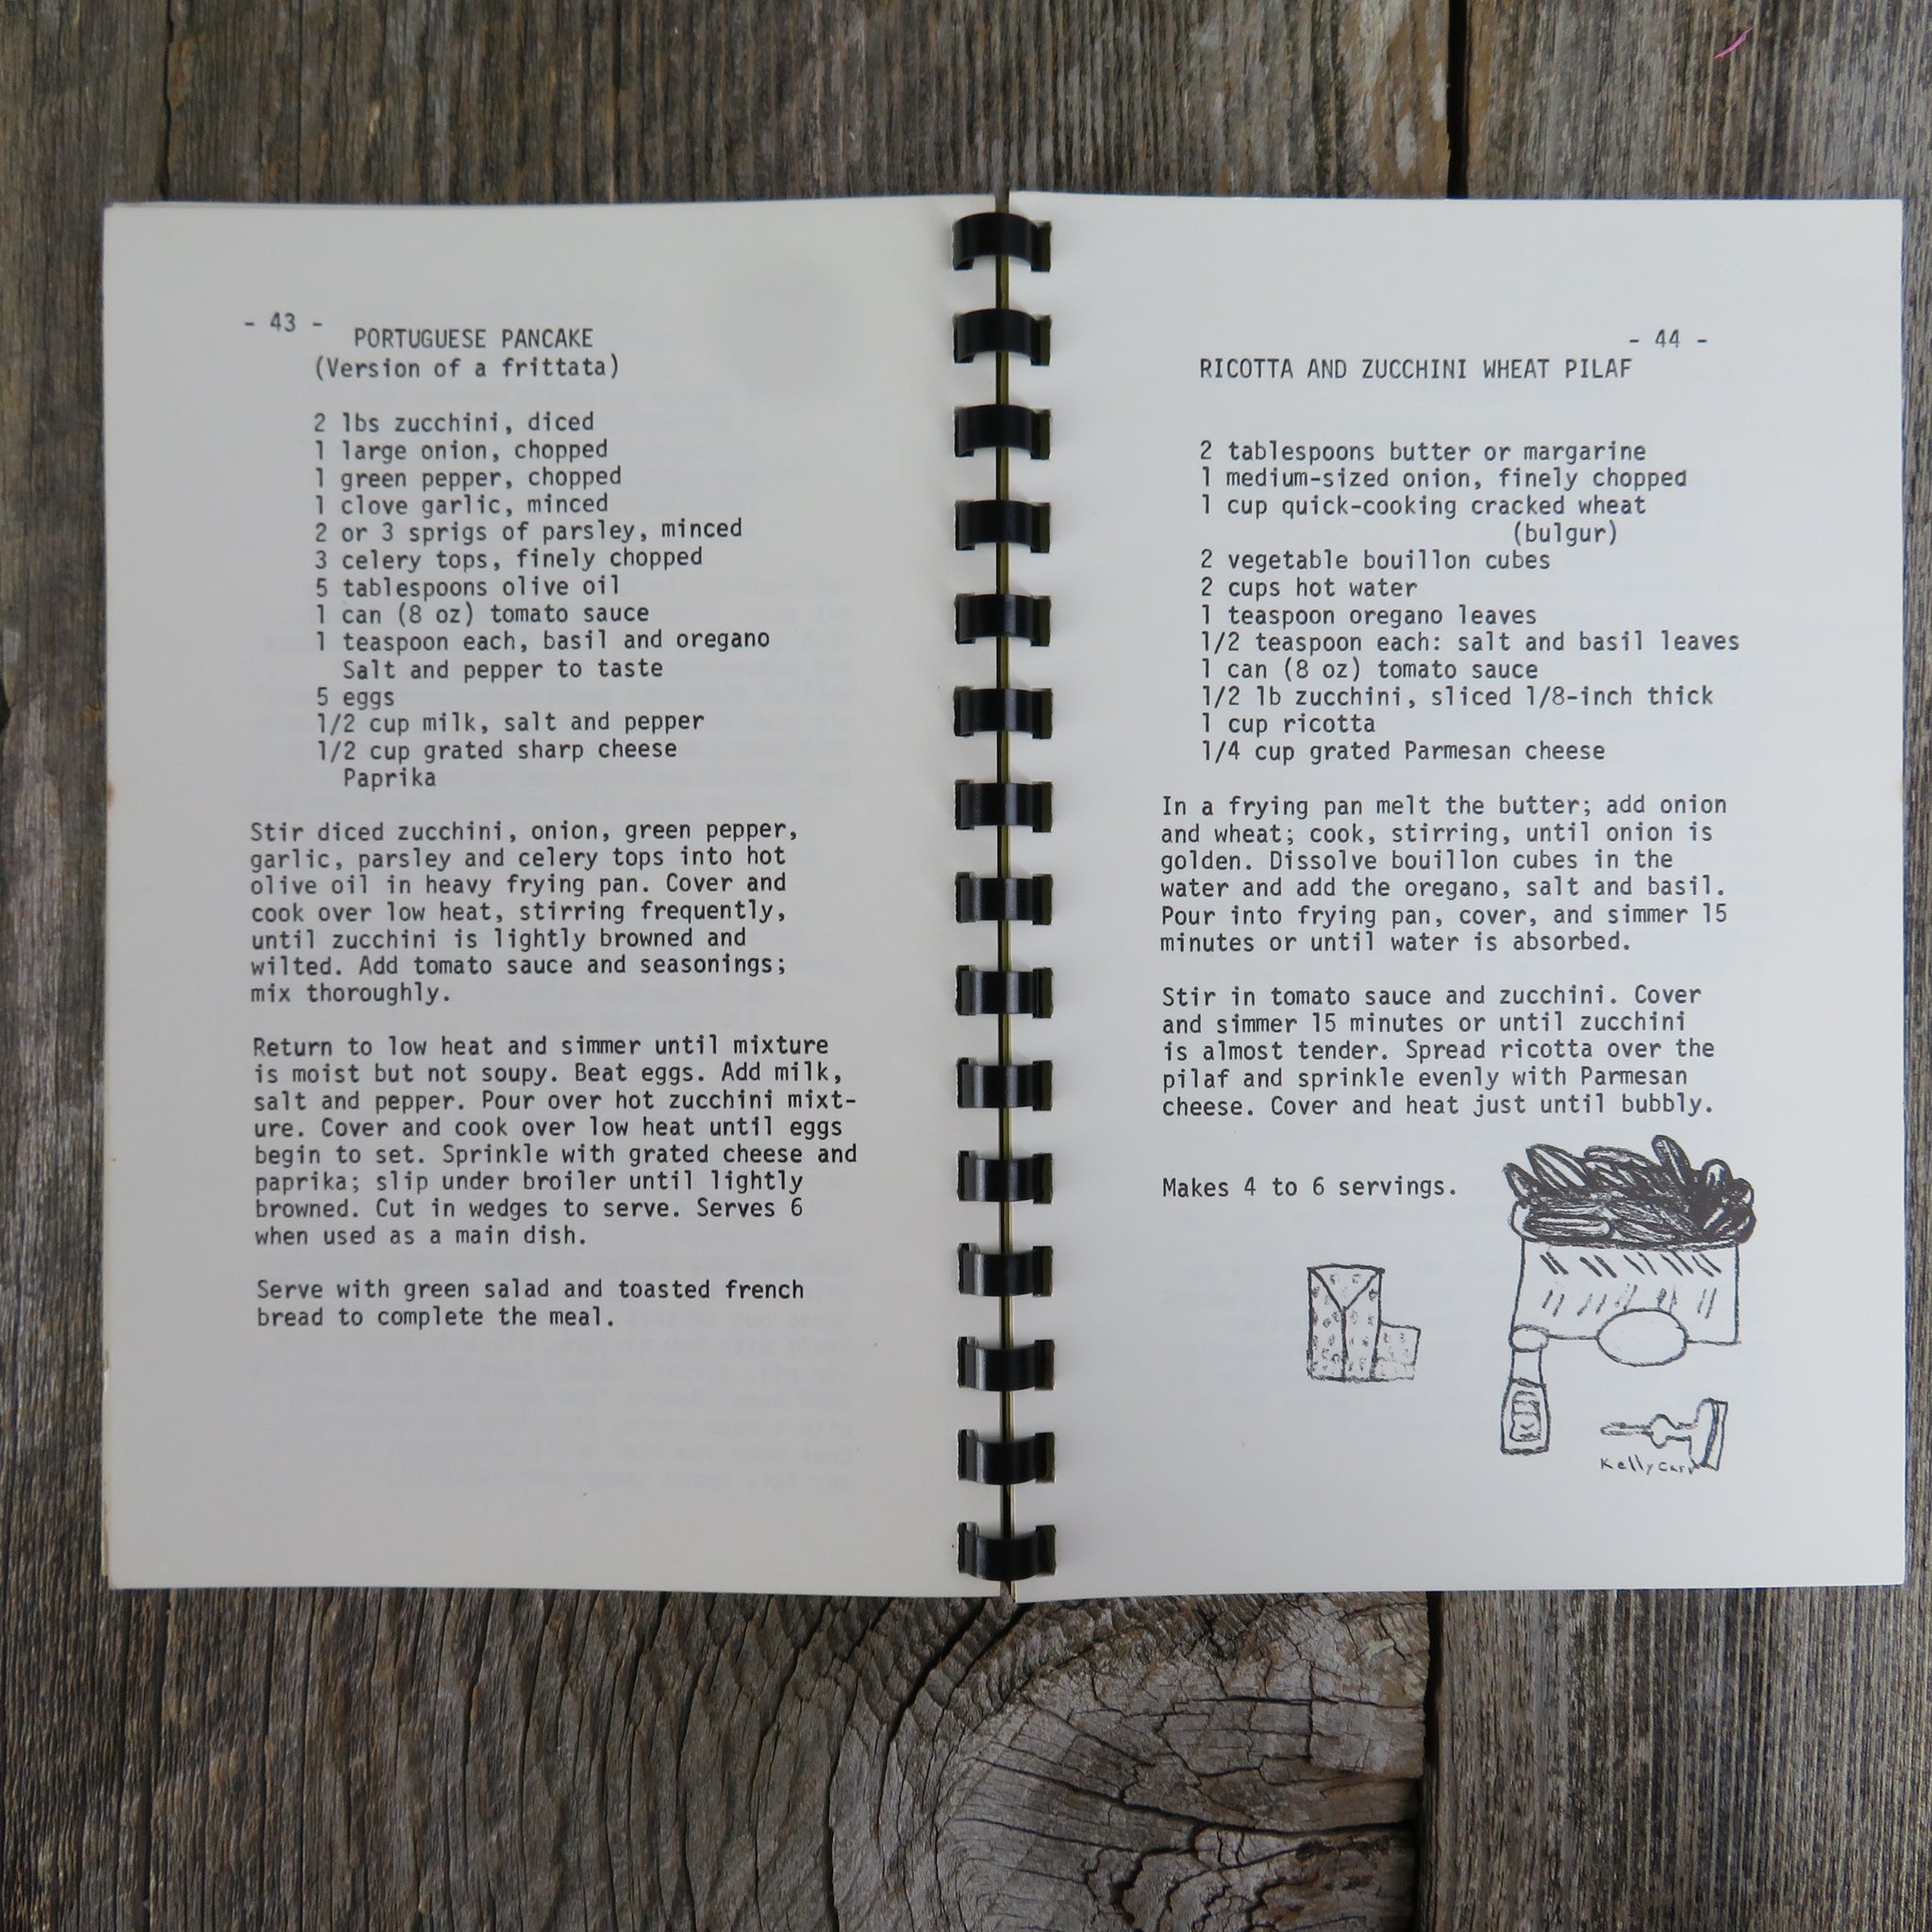 - 43 -
PORTUGUESE PANCAKE
(Version of a frittata)
2 lbs zucchini, diced
1 large onion, chopped
1 green pepper, chopped
1 clove garlic, minced
2 or 3 sprigs of parsley, minced
3 celery tops, finely chopped
5 tablespoons olive oil
1 can (8 oz) tomato sauce
1 teaspoon each, basil and oregano
Salt and pepper to taste
5 eggs
1/2 cup milk, salt and pepper
1/2 cup grated sharp cheese
Paprika
Stir diced zucchini, onion, green pepper,
garlic, parsley and celery tops into hot
olive oil in heavy frying pan. Cover and
cook over low heat, stirring frequently,
until zucchini is lightly browned and
wilted. Add tomato sauce and seasonings;
mix thoroughly.
Return to low heat and simmer until mixture
is moist but not soupy. Beat eggs. Add milk,
salt and pepper. Pour over hot zucchini mixt-
ure. Cover and cook over low heat until eggs
begin to set. Sprinkle with grated cheese and
paprika; slip under broiler until lightly
browned. Cut in wedges to serve. Serves 6
when used as a main dish.
Serve with green salad and toasted french
bread to complete the meal.
- 44 -
RICOTTA AND ZUCCHINI WHEAT PILAF
2 tablespoons butter or margarine
1 medium-sized onion, finely chopped
1 cup quick-cooking cracked wheat
(bulgur)
2 vegetable bouillon cubes
2 cups hot water
1 teaspoon oregano leaves
1/2 teaspoon each: salt and basil leaves
1 can (8 oz) tomato sauce
1/2 lb zucchini, sliced 1/8-inch thick
1 cup ricotta
1/4 cup grated Parmesan cheese
In a frying pan melt the butter; add onion
and wheat; cook, stirring, until onion is
golden. Dissolve bouillon cubes in the
water and add the oregano, salt and basil.
Pour into frying pan, cover, and simmer 15
minutes or until water is absorbed.
Stir in tomato sauce and zucchini. Cover
and simmer 15 minutes or until zucchini
is almost tender. Spread ricotta over the
pilaf and sprinkle evenly with Parmesan
cheese. Cover and heat just until bubbly.
Makes 4 to 6 servings.
Kelly